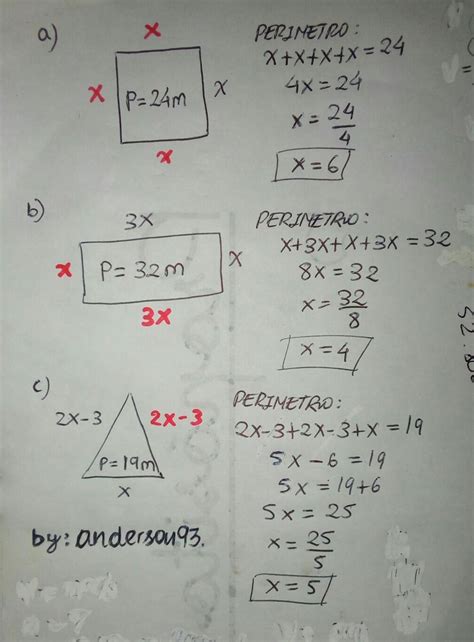 a)
x
x
P=24m
x
x
PERIMETRO:
x+x+x+x=24
4x=24
x=24/4
x=6
b)
3x
x
P=32m
x
3x
PERIMETRO:
x+3x+x+3x=32
8x=32
x=32/8
x=4
c)
2x-3
2x-3
P=19m
x
PERIMETRO:
2x-3+2x-3+x=19
5x-6=19
5x=19+6
5x=25
x=25/5
x=5
by: anderson93.